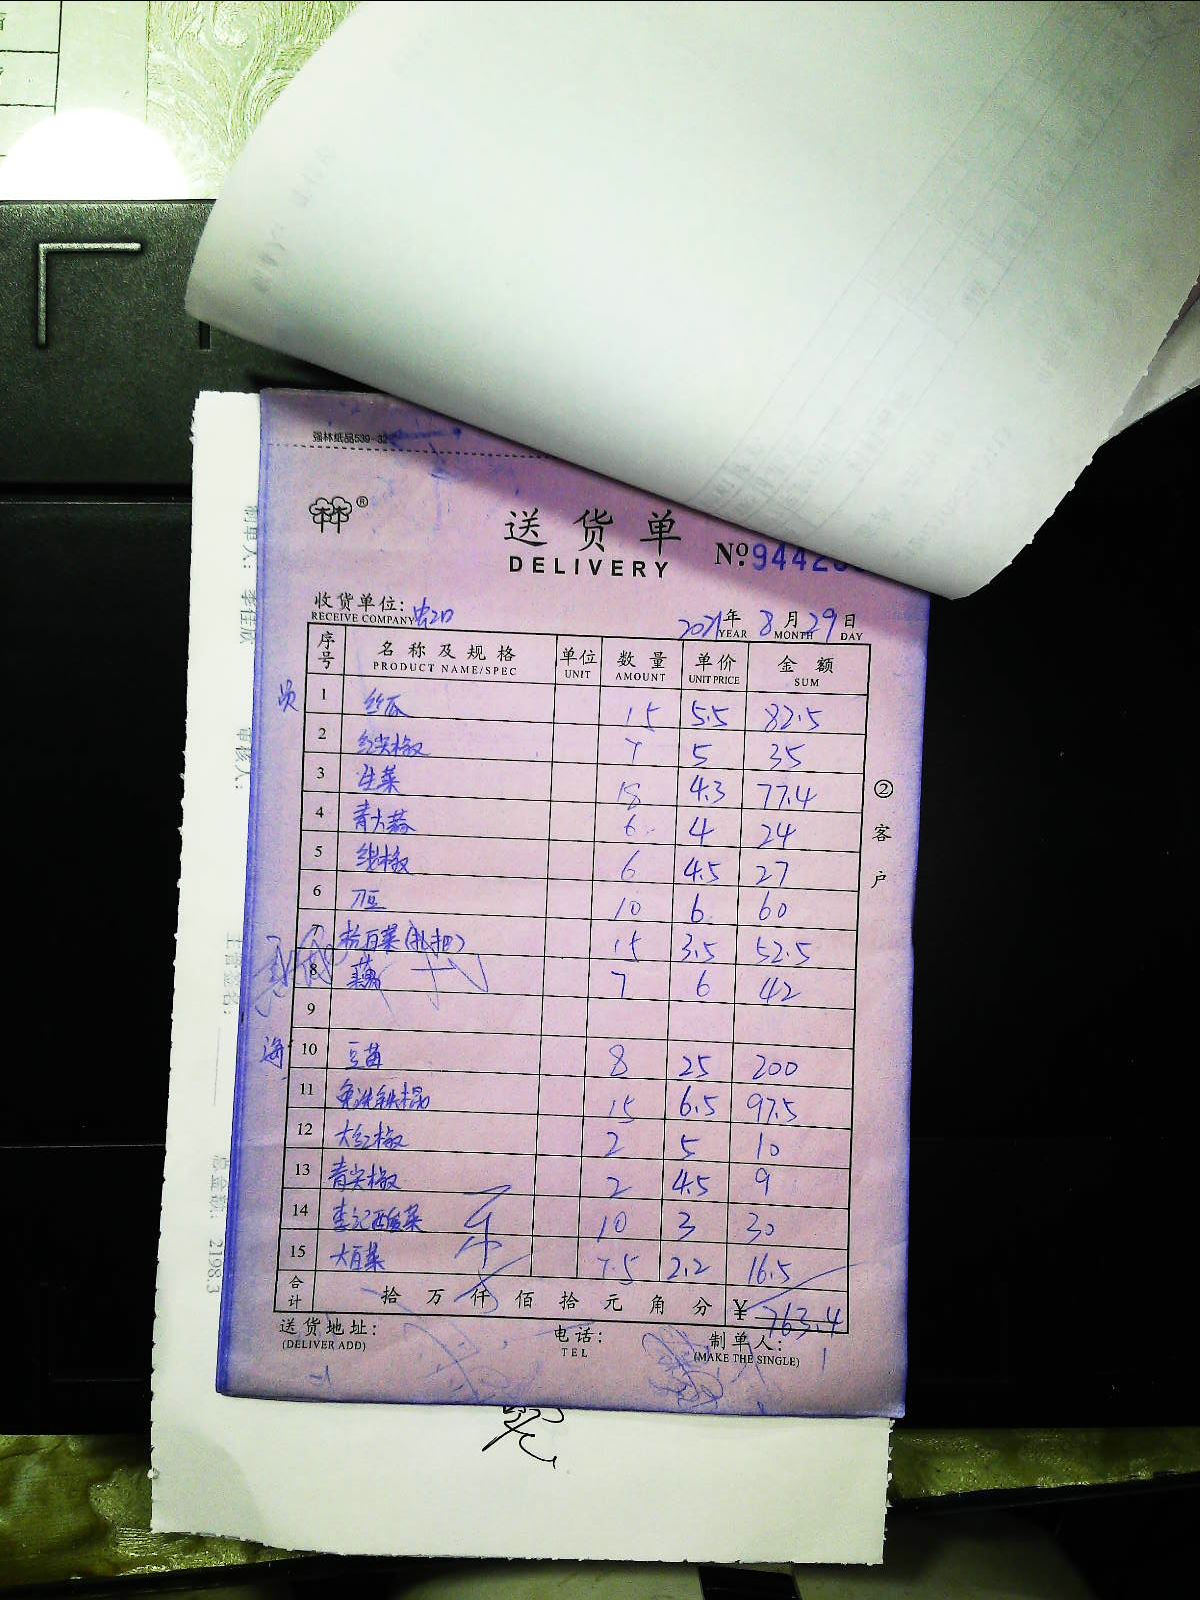 强林纸品539-32
送货单
DELIVERY
No.
收货单位：
RECEIVE COMPANY
2021年 8月 29日
YEAR MONTH DAY
序号 名称及规格 单位 数量 单价 金额
PRODUCT NAME/SPEC UNIT AMOUNT UNIT PRICE SUM
1 丝瓜 15 5.5 82.5
2 红尖椒 7 5 35
3 生菜 18 4.3 77.4
4 青大蒜 6 4 24
5 线椒 6 4.5 27
6 刀豆 10 6 60
7 松百菜(扎把) 15 3.5 52.5
8 藕 7 6 42
9
10 豆苗 8 25 200
11 15 6.5 97.5
12 大红椒 2 5 10
13 青尖椒 2 4.5 9
14 李记酸菜 10 3 30
15 大白菜 7.5 2.2 16.5
合计 拾 万 仟 佰 拾 元 角 分 ¥763.4
②客户
送货地址：
(DELIVER ADD)
电话：
TEL
制单人：
(MAKE THE SINGLE)
制单人：
审核人：
主管签名：
总金额：2198.3